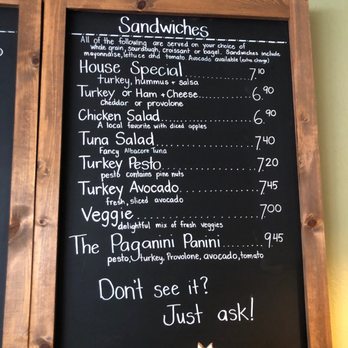 Sandwiches
All of the following are served on your choice of
whole grain, sourdough, croissant or bagel. Sandwiches include
mayonnaise, lettuce and tomato. Avocado available (extra charge)
House Special.......... 7.10
turkey, hummus + salsa
Turkey or Ham + Cheese.......... 6.90
Cheddar or provolone
Chicken Salad.......... 6.90
A local favorite with diced apples
Tuna Salad.......... 7.40
Fancy Albacore Tuna
Turkey Pesto.......... 7.20
pesto contains pine nuts
Turkey Avocado.......... 7.45
fresh, sliced avocado
Veggie.......... 7.00
delightful mix of fresh veggies
The Paganini Panini.......... 9.45
pesto, turkey, Provolone, avocado, tomato
Don't see it?
Just ask!